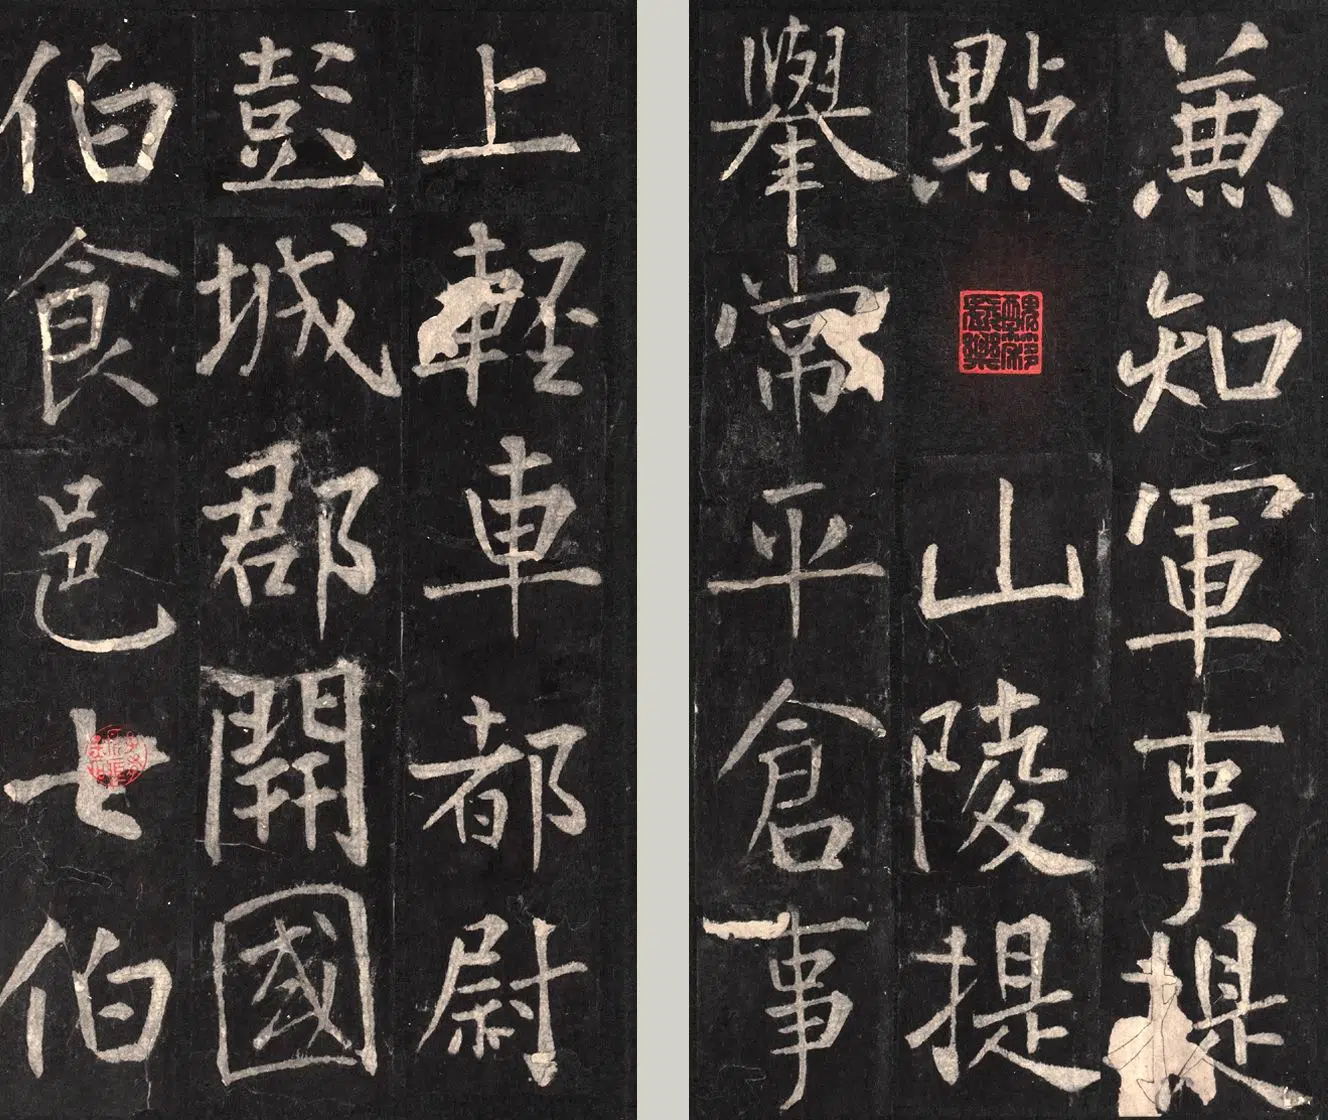 兼知軍事提
點山陵提
舉常平倉事
上輕車都尉
彭城郡開國
伯食邑七伯